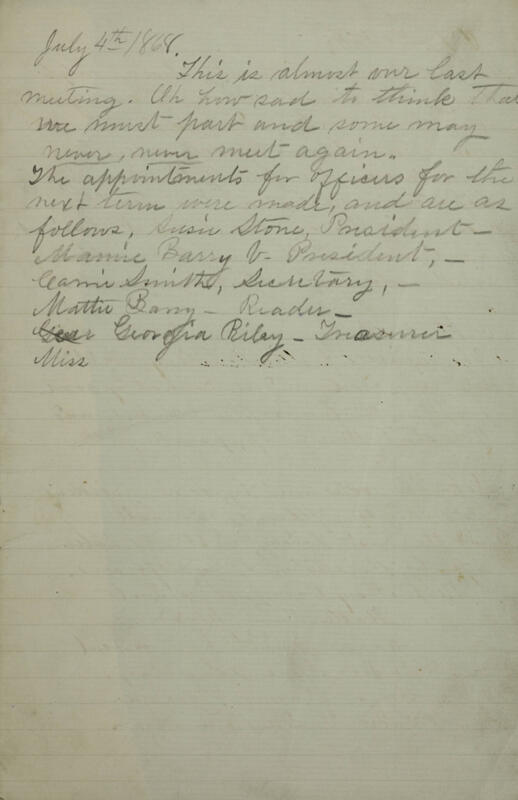 July 4th 1868.
This is almost our last
meeting. Oh how sad to think that
we must part and some may
never, never meet again.
The appointments for officers for the
next term were made, and are as
follows, Susie Stone, President —
Mamie Barry V. President, —
Carrie Smith, Secretary, —
Mattie Barry — Reader —
Georgia Riley — Treasurer
Miss